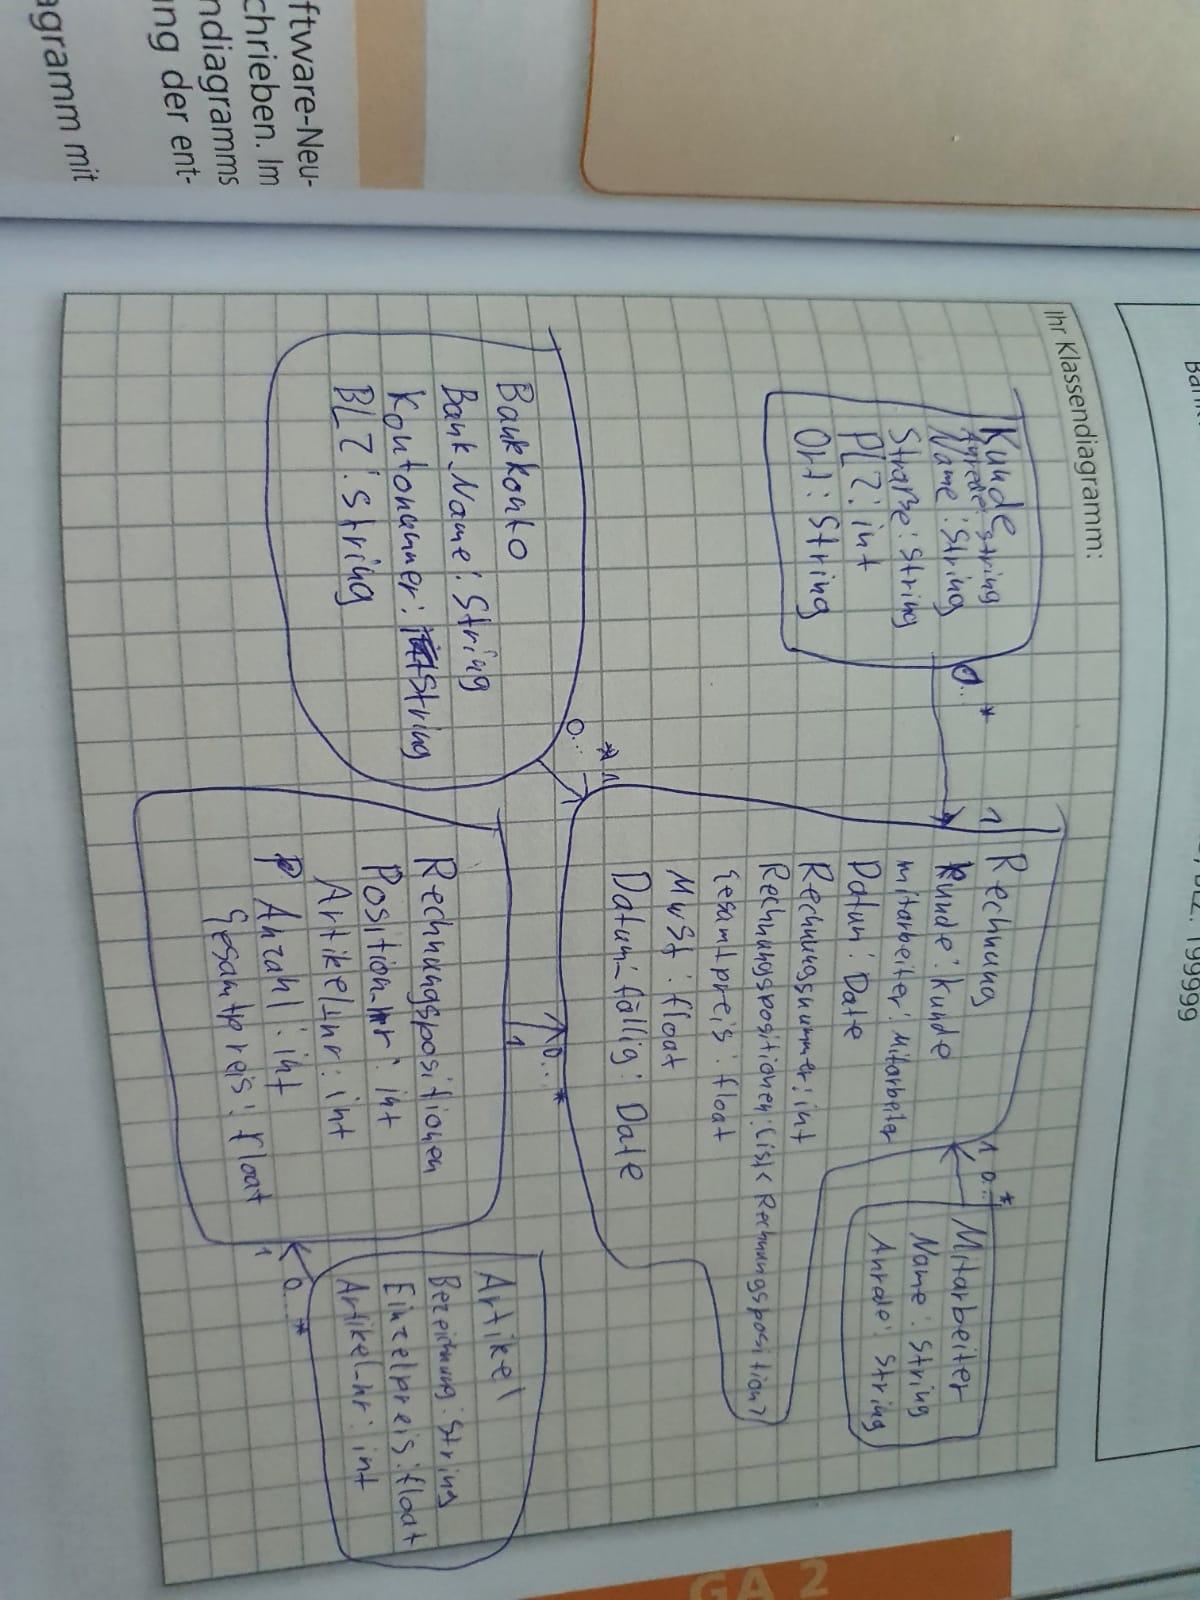 ftware-Neu-
chrieben. Im
ndiagramms
ung der ent-
agramm mit
199999
Ihr Klassendiagramm:
Kunde
Anrede: String
Name: String
Straße: String
PLZ: int
Ort: String
0..*
1
Rechnung
Kunde: Kunde
mitarbeiter: Mitarbeiter
Datum: Date
Rechnungsnummer: int
Rechnungspositionen: List<Rechnungsposition>
Gesamtpreis: float
MwSt: float
Datum_fällig: Date
1 0..*
Mitarbeiter
Name: String
Anrede: String
Bankkonto
Bank_Name: String
Kontonummer: String
BLZ: String
0..*
1
0..*
1
Rechnungspositionen
Position_nr: int
Artikel_nr: int
Anzahl: int
Gesamtpreis: float
1
0..*
Artikel
Bezeichnung: String
Einzelpreis: float
Artikel_nr: int
GA 2